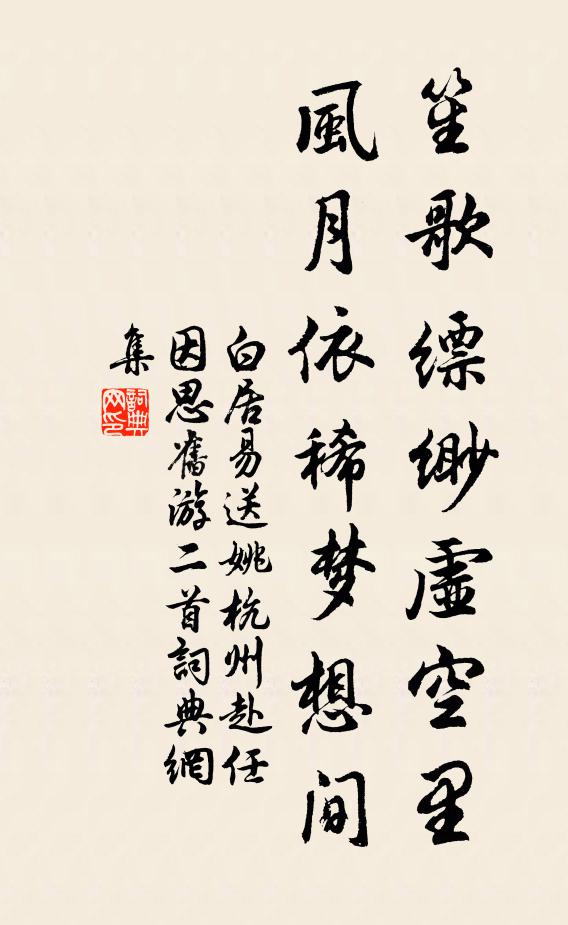 笙歌缥缈虛空里
風月依稀梦想间
白居易送姚杭州赴任
因思舊游二首詞典網
集
詞典網印